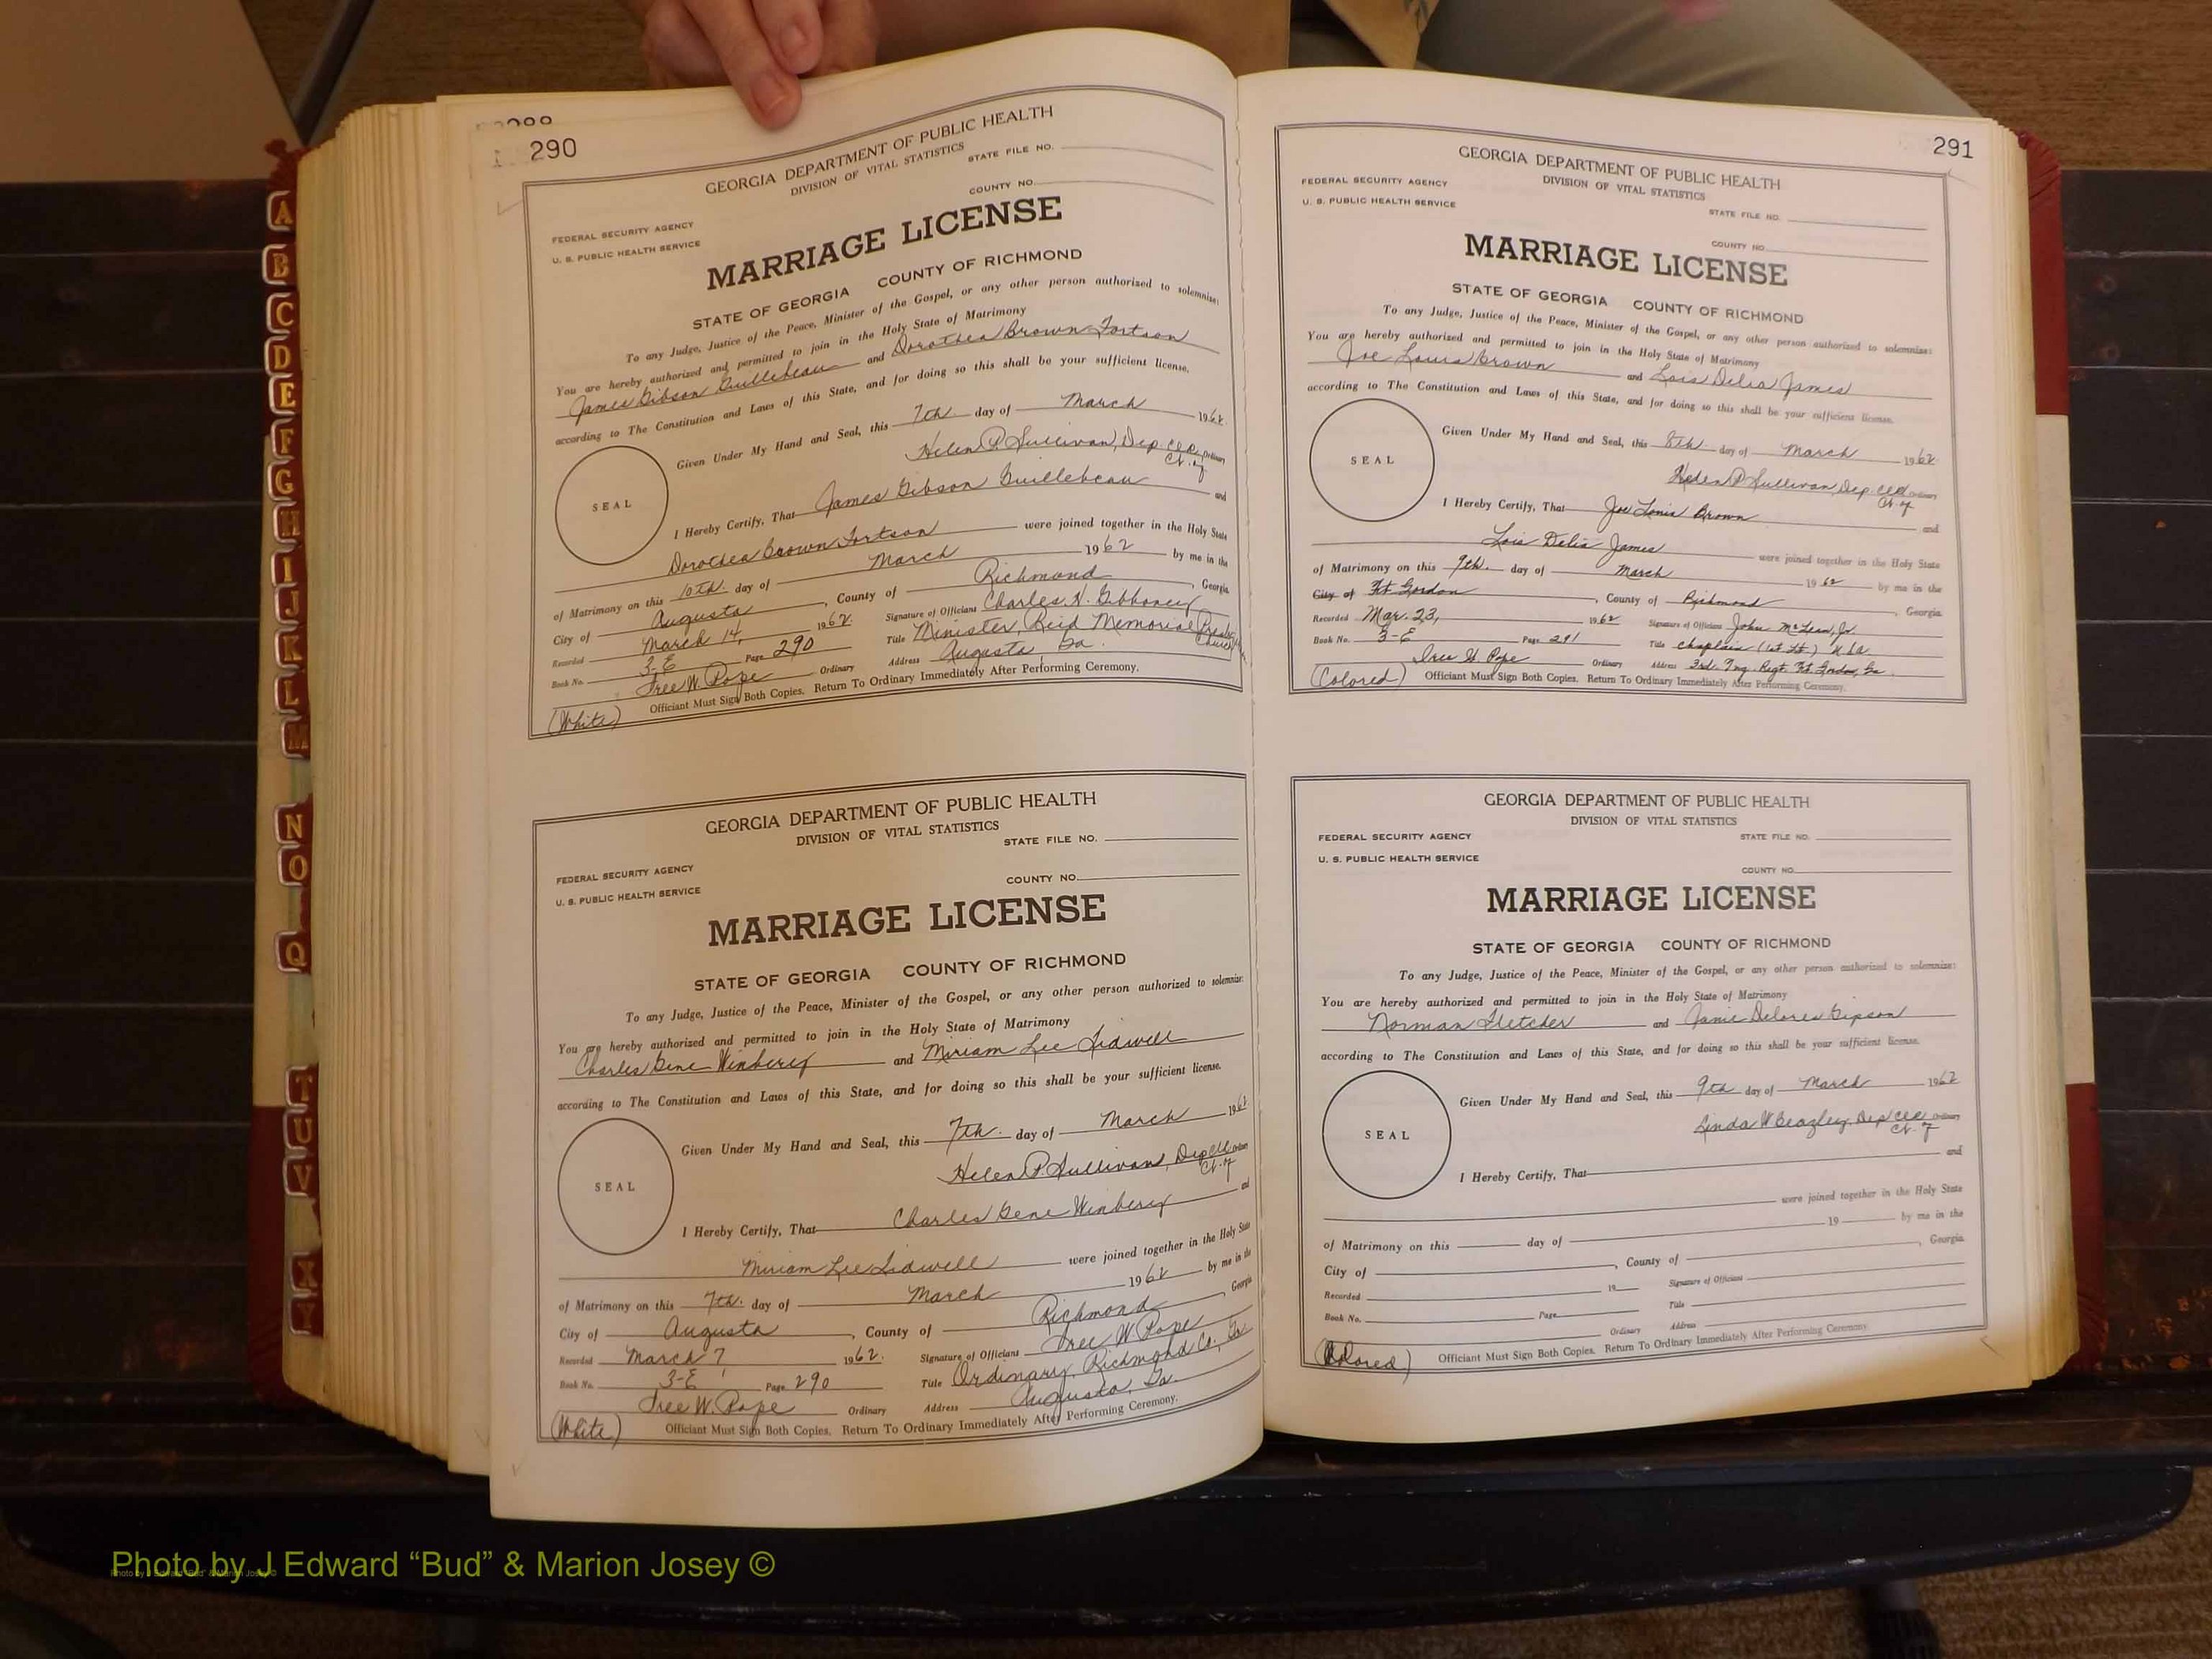 290
GEORGIA DEPARTMENT OF PUBLIC HEALTH
DIVISION OF VITAL STATISTICS
STATE FILE NO.
COUNTY NO.
FEDERAL SECURITY AGENCY
U. S. PUBLIC HEALTH SERVICE
MARRIAGE LICENSE
STATE OF GEORGIA COUNTY OF RICHMOND
To any Judge, Justice of the Peace, Minister of the Gospel, or any other person authorized to solemnize:
You are hereby authorized and permitted to join in the Holy State of Matrimony
James Gibson Guillebeau and Dorothea Brown Fortson
according to The Constitution and Laws of this State, and for doing so this shall be your sufficient license.
Given Under My Hand and Seal, this 7th day of March 1962
Helen P. Sullivan, Dep. Clk. Ordinary
SEAL
I Hereby Certify, That James Gibson Guillebeau and
Dorothea Brown Fortson were joined together in the Holy State
of Matrimony on this 10th. day of March 1962 by me in the
City of Augusta, County of Richmond, Georgia
Recorded March 14, 1962. Signature of Officians Charles N. Gibboney
Book No. 3-E Page 290 Title Minister, Reid Memorial Presby Church
Tree W. Pope Ordinary Address Augusta, Ga.
(White) Officiant Must Sign Both Copies. Return To Ordinary Immediately After Performing Ceremony.
GEORGIA DEPARTMENT OF PUBLIC HEALTH
DIVISION OF VITAL STATISTICS
STATE FILE NO.
FEDERAL SECURITY AGENCY
U. S. PUBLIC HEALTH SERVICE
COUNTY NO.
MARRIAGE LICENSE
STATE OF GEORGIA COUNTY OF RICHMOND
To any Judge, Justice of the Peace, Minister of the Gospel, or any other person authorized to solemnize:
You are hereby authorized and permitted to join in the Holy State of Matrimony
Charles Gene Winberry and Miriam Lee Lidwell
according to The Constitution and Laws of this State, and for doing so this shall be your sufficient license.
Given Under My Hand and Seal, this 7th. day of March 1962
Helen P. Sullivan, Dep Clk Ordinary
SEAL
I Hereby Certify, That Charles Gene Winberry and
Miriam Lee Lidwell were joined together in the Holy State
of Matrimony on this 7th. day of March 1962 by me in the
City of Augusta, County of Richmond, Georgia
Recorded March 7, 1962. Signature of Officians Tree W. Pope
Book No. 3-E Page 290 Title Ordinary, Richmond Co., Ga
Tree W. Pope Ordinary Address Augusta, Ga.
(White) Officiant Must Sign Both Copies. Return To Ordinary Immediately After Performing Ceremony.
291
GEORGIA DEPARTMENT OF PUBLIC HEALTH
DIVISION OF VITAL STATISTICS
FEDERAL SECURITY AGENCY
U. S. PUBLIC HEALTH SERVICE
STATE FILE NO.
COUNTY NO.
MARRIAGE LICENSE
STATE OF GEORGIA COUNTY OF RICHMOND
To any Judge, Justice of the Peace, Minister of the Gospel, or any other person authorized to solemnize:
You are hereby authorized and permitted to join in the Holy State of Matrimony
Joe Louis Brown and Lois Delia James
according to The Constitution and Laws of this State, and for doing so this shall be your sufficient license.
Given Under My Hand and Seal, this 8th day of March 1962
Helen P. Sullivan, Dep. Clk Ordinary
SEAL
I Hereby Certify, That Joe Louis Brown and
Lois Delia James were joined together in the Holy State
of Matrimony on this 9th. day of March 1962 by me in the
City of Ft Gordon, County of Richmond, Georgia
Recorded Mar. 23, 1962 Signature of Officians John McLeod, Jr.
Book No. 3-E Page 291 Title chaplain (1st Lt.) USA
Tree W. Pope Ordinary Address 3rd. Tng. Regt. Ft. Gordon, Ga.
(Colored) Officiant Must Sign Both Copies. Return To Ordinary Immediately After Performing Ceremony.
GEORGIA DEPARTMENT OF PUBLIC HEALTH
DIVISION OF VITAL STATISTICS
FEDERAL SECURITY AGENCY
STATE FILE NO.
U. S. PUBLIC HEALTH SERVICE
COUNTY NO.
MARRIAGE LICENSE
STATE OF GEORGIA COUNTY OF RICHMOND
To any Judge, Justice of the Peace, Minister of the Gospel, or any other person authorized to solemnize:
You are hereby authorized and permitted to join in the Holy State of Matrimony
Norman Fletcher and Janie Delores Gipson
according to The Constitution and Laws of this State, and for doing so this shall be your sufficient license.
Given Under My Hand and Seal, this 9th day of March 1962
Linda W. Beazley, Dep Clk Ordinary
SEAL
I Hereby Certify, That and
were joined together in the Holy State
of Matrimony on this day of 19 by me in the
City of , County of , Georgia
Recorded 19 Signature of Officians
Book No. Page Title
Ordinary Address
(Colored) Officiant Must Sign Both Copies. Return To Ordinary Immediately After Performing Ceremony.
A
B
C
D
E
F
G
H
I
J
K
L
M
N
O
Q
T
U
V
X
Y
Photo by J Edward “Bud” & Marion Josey ©